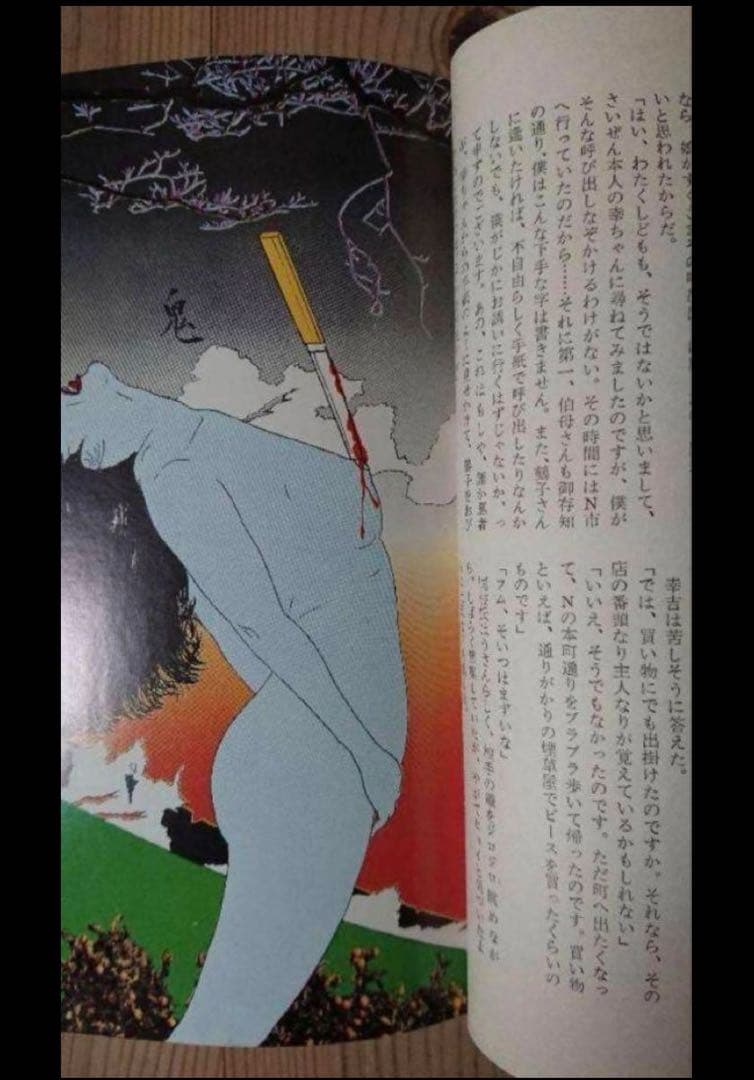 いと思われたからだ。
「はい、わたくしどもも、そうではないかと思いまして、
さいぜん本人の幸ちゃんに尋ねてみましたのですが、僕が
そんな呼び出しなぞかけるわけがない。その時間にはN市
へ行っていたのだから……それに第一、伯母さんも御存知
の通り、僕はこんな下手な字は書きません。また、鶴子さん
に逢いたければ、不自由らしく手紙で呼び出したりなんか
しないでも、僕がじかにお誘いに行くはずじゃないか、っ
て申すのでございます。あの、これはもしや、誰か悪者
幸吉は苦しそうに答えた。
「では、買い物にでも出掛けたのですか。それなら、その
店の番頭なり主人なりが覚えているかもしれない」
「いいえ、そうでもなかったのです。ただ町へ出たくなっ
て、Nの本町通りをブラブラ歩いて帰ったのです。買い物
といえば、通りがかりの煙草屋でピースを買ったくらいの
ものです」
「フム、そいつはまずいな」
鬼